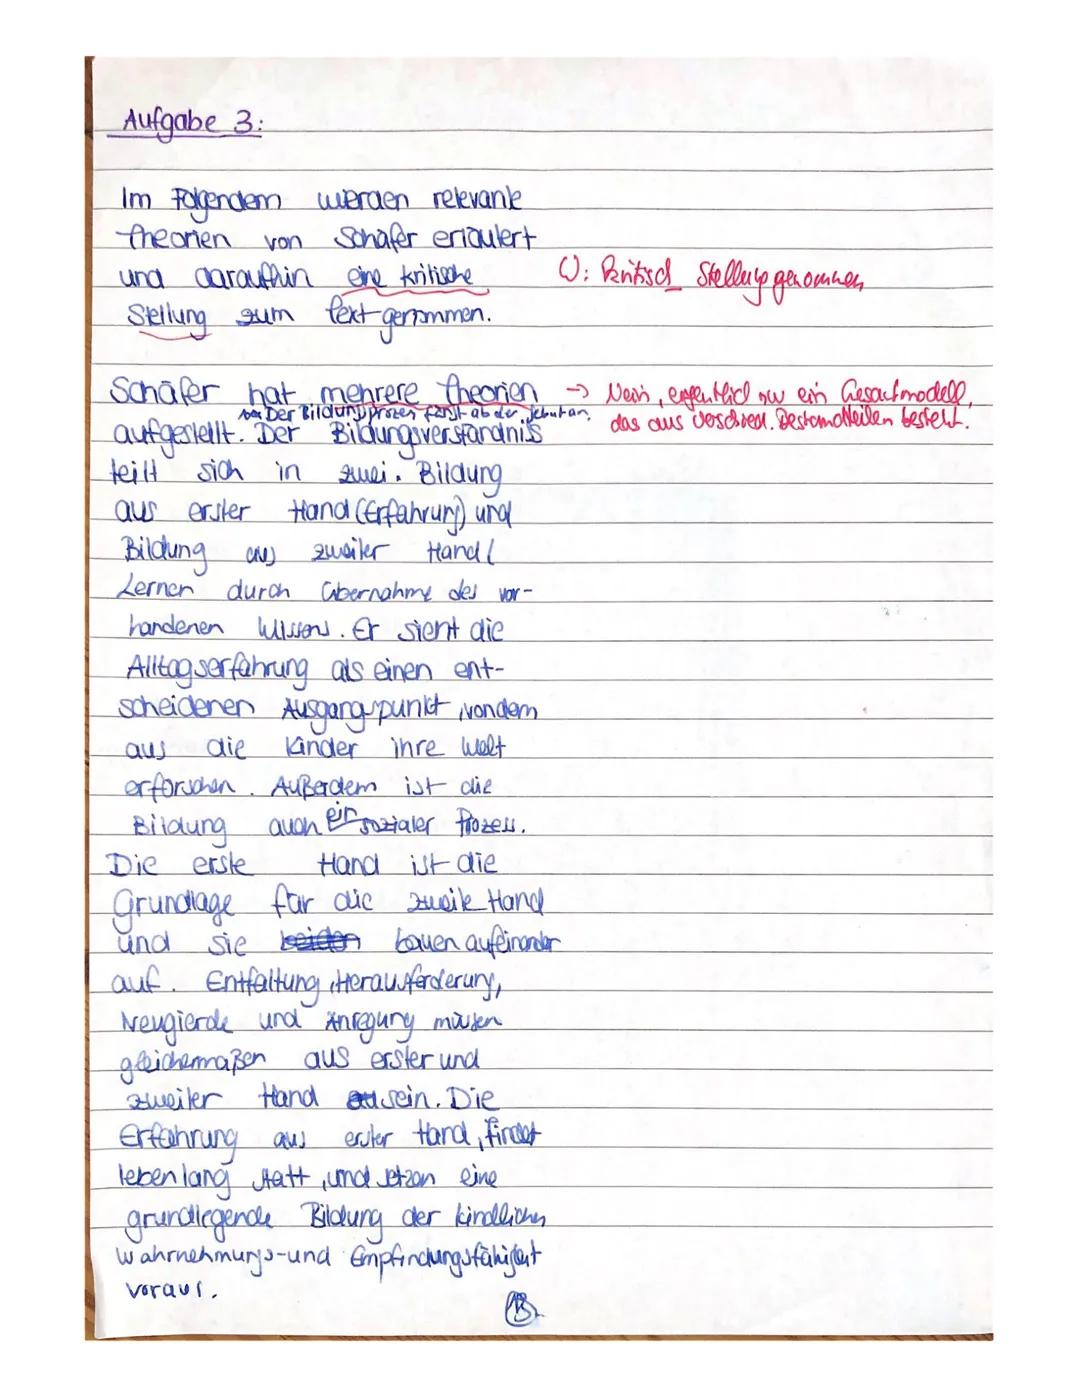 Aufgabe 3:
Im Folgendem werden relevante
theorien von Schäfer erläutert
und daraufhin eine kritische
W: Kritisch Stellung genommen
Stellung zum text genommen.
Schäfer hat mehrere theorien
→ Nein, eigentlich nur ein Gesamtmodell,
Der Bildungsprozess fänst ab der jeburt an.
das aus verschied. Bestandteilen besteht.
aufgestellt. Der Bildungsverständnis
teilt sich in zwei. Bildung
aus erster Hand (Erfahrung) und
Bildung aus zweiter Hand (
Lernen durch übernahme des vor-
handenen Wissens. Er sieht die
Alltagserfahrung als einen ent-
scheidenen Ausgangspunkt, vondem
aus die Kinder ihre Welt
erforschen. Außerdem ist die
Bildung auch ein sozialer Prozess.
Die erste Hand ist die
Grundlage für die zweite Hand
und sie beiden bauen aufeinander
auf. Entfaltung, Herausforderung,
Neugierde und Anregung müssen
gleichermaßen aus erster und
zweiter Hand sein. Die
Erfahrung aus erster Hand, findet
lebenlang statt, und setzen eine
grundlegende Bildung der kindlichen
Wahrnehmungs-und Empfindungsfähigkeit
voraus.